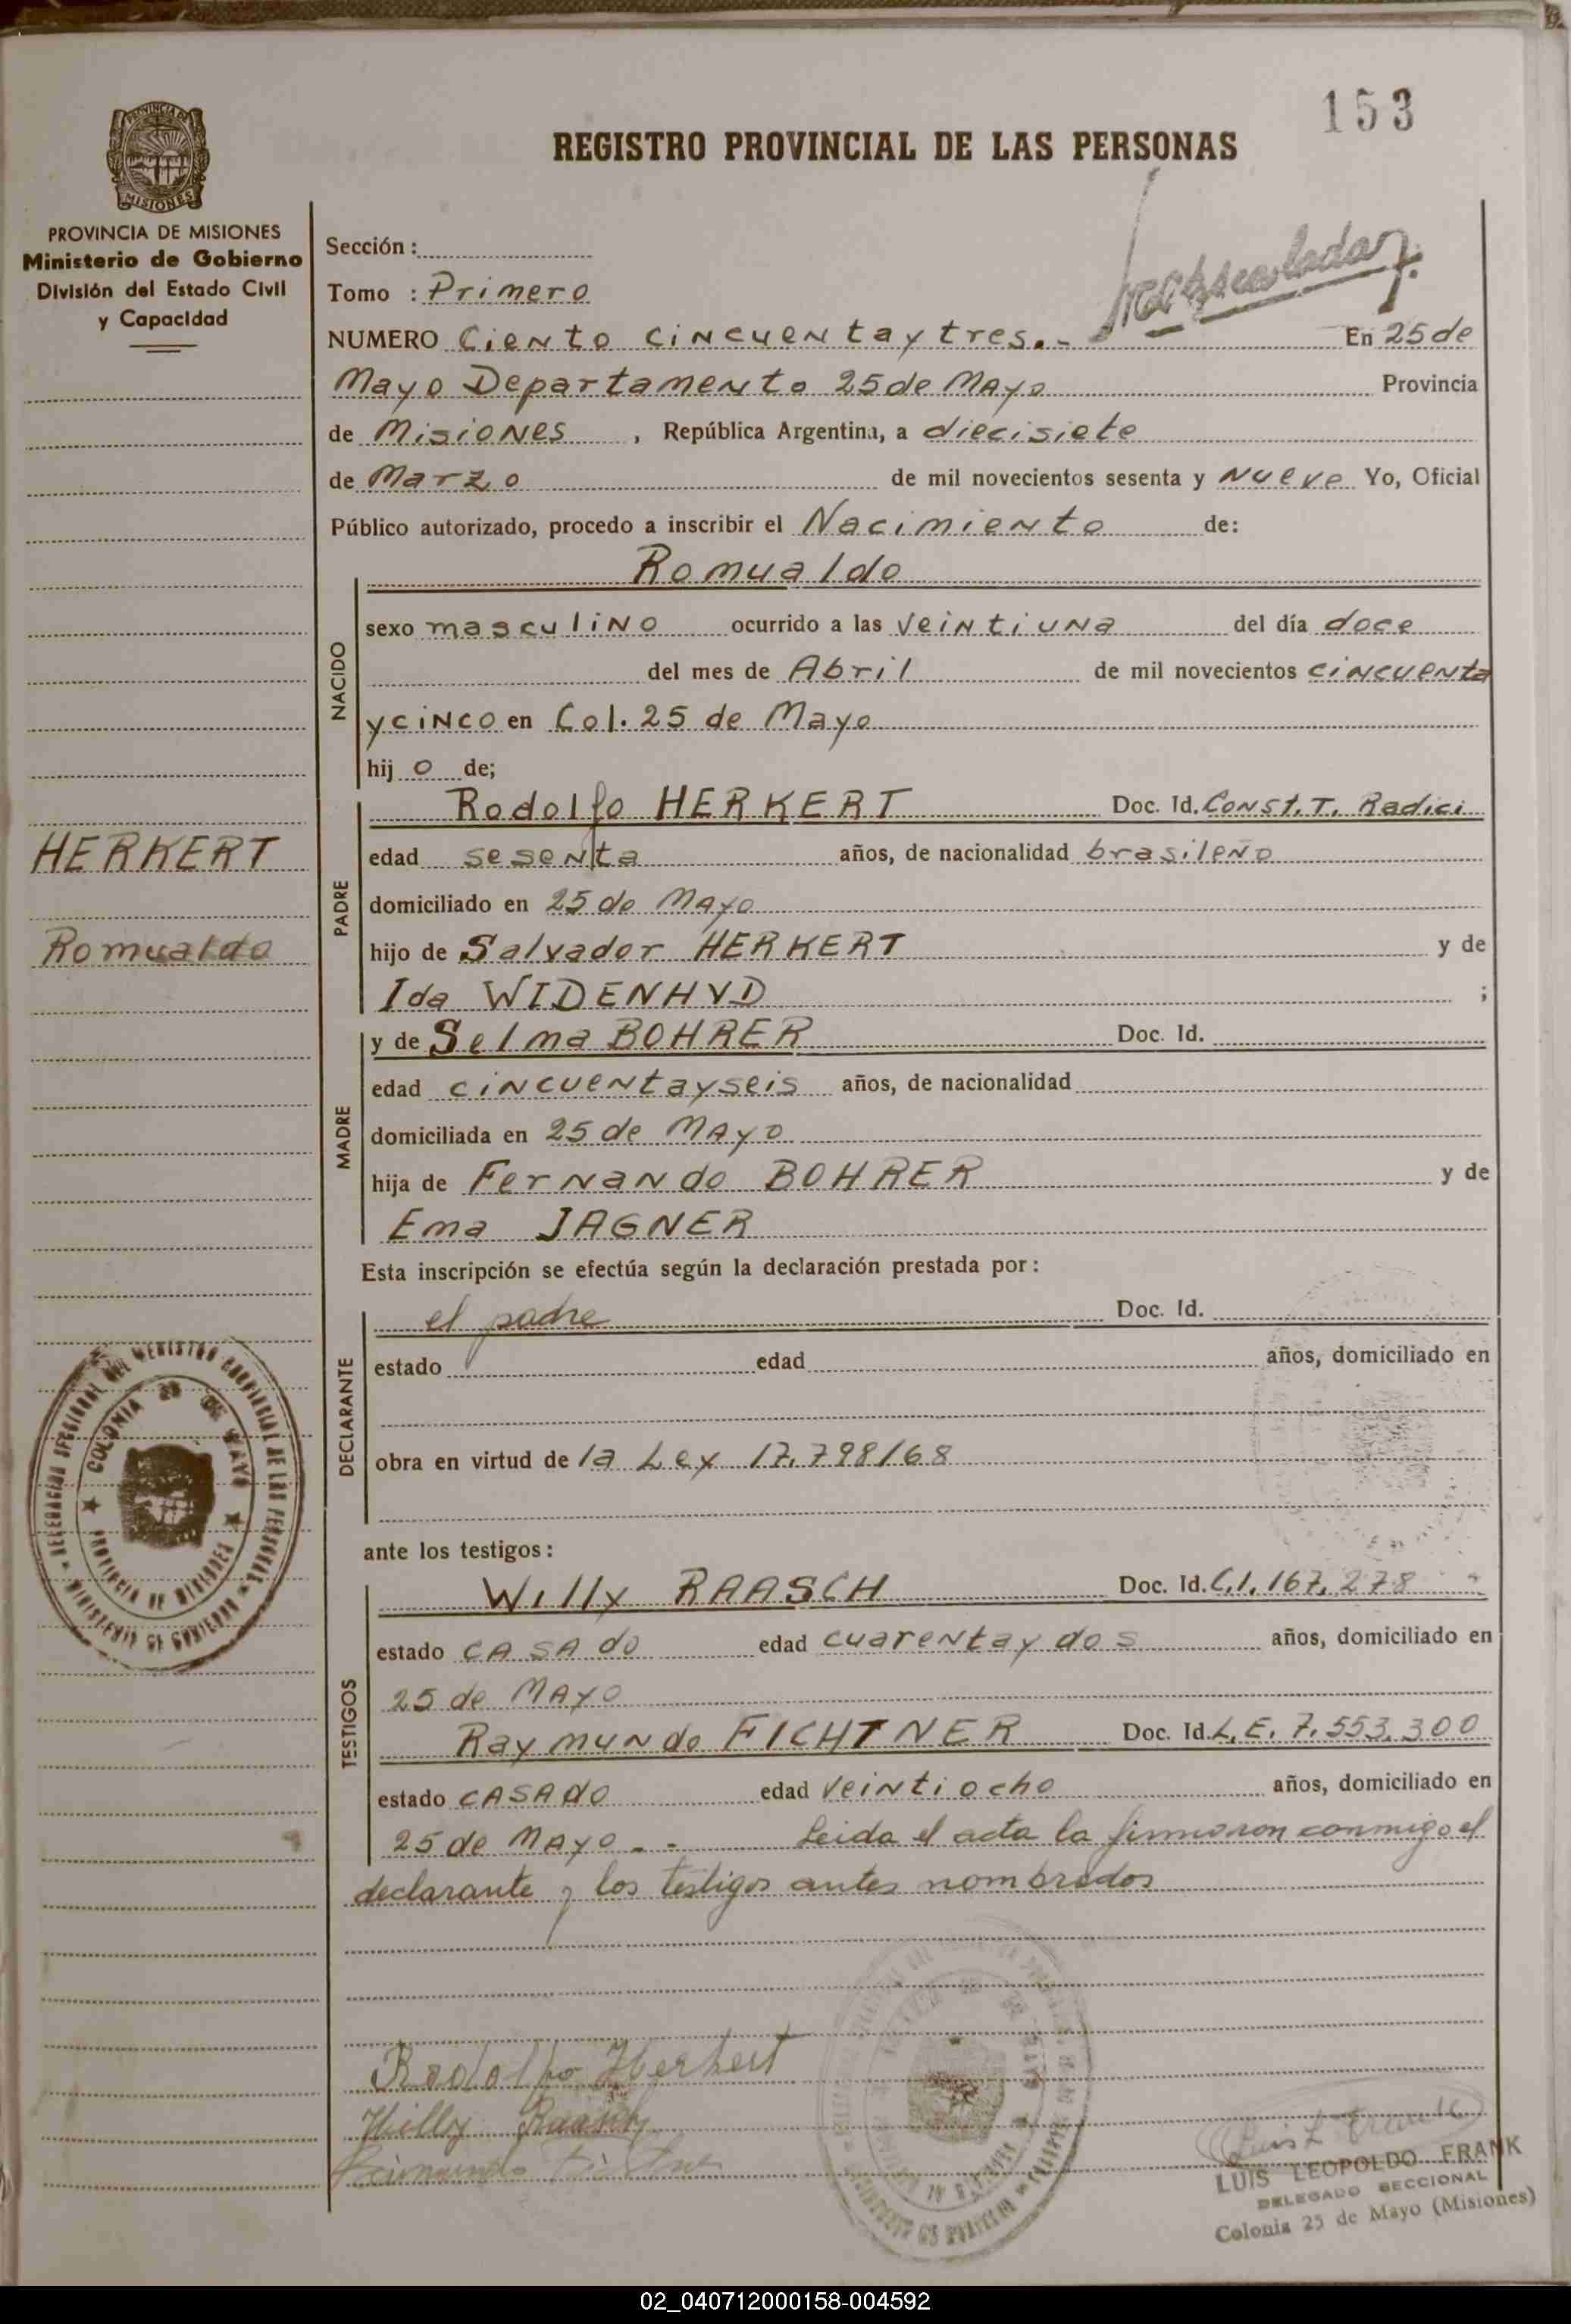 153
REGISTRO PROVINCIAL DE LAS PERSONAS
PROVINCIA DE MISIONES
Ministerio de Gobierno
División del Estado Civil
y Capacidad
Sección :
Tomo : Primero
NUMERO Ciento cincuenta y tres.- En 25 de
Mayo Departamento 25 de Mayo Provincia
de Misiones , República Argentina, a diecisiete
de Marzo de mil novecientos sesenta y nueve Yo, Oficial
Público autorizado, procedo a inscribir el Nacimiento de:
Romualdo
NACIDO
sexo masculino ocurrido a las veintiuna del día doce
del mes de Abril de mil novecientos cincuenta
y cinco en Col. 25 de Mayo
hij o de;
PADRE
Rodolfo HERKERT Doc. Id. Const. T. Radici
edad sesenta años, de nacionalidad brasileño
domiciliado en 25 de Mayo
hijo de Salvador HERKERT y de
Ida WIDENHVD ;
HERKERT
Romualdo
MADRE
y de Selma BOHRER Doc. Id.
edad cincuenta y seis años, de nacionalidad
domiciliada en 25 de Mayo
hija de Fernando BOHRER y de
Ema JAGNER
Esta inscripción se efectúa según la declaración prestada por :
DECLARANTE
el padre Doc. Id.
estado edad años, domiciliado en
obra en virtud de la Ley 17.798/68
ante los testigos :
TESTIGOS
Willy RAASCH Doc. Id. C.I. 167.278
estado CASADO edad cuarenta y dos años, domiciliado en
25 de MAYO
Raymundo FICHTNER Doc. Id. L.E. 7.553.300
estado CASADO edad veintiocho años, domiciliado en
25 de MAYO.- - Leida el acta la firmaron conmigo el
declarante y los testigos antes nombrados
COLONIA 25 DE MAYO
PROVINCIA DE MISIONES
MINISTERIO DE GOBIERNO
Rodolfo Herkert
Willy Raasch
Luis L Frank
LUIS LEOPOLDO FRANK
DELEGADO SECCIONAL
Colonia 25 de Mayo (Misiones)
02_040712000158-004592